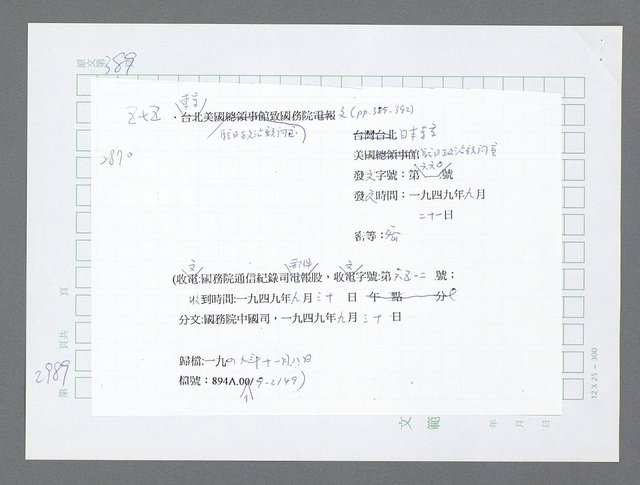 原文第 389
東京
五七五、台北美國總領事館致國務院電報文(pp.389-392)
駐日政治顧問室
台灣台北日本東京
美國總領事館駐日政治顧問室
2870
發文字號：第 六六〇 號
發文時間：一九四九年九月
二十一日
密等：密
文 郵件 文
(收電:國務院通信紀錄司電報股，收電字號:第 六五一二 號；
收到時間:一九四九年九月三十 日 午 點 分
分文:國務院中國司，一九四九年九月三十 日
歸檔:一九四九年十一月八日
檔號：894A.00/9-2149)
頁
頁共
2989
第
文 範
年 月 日
12 X 25 = 300